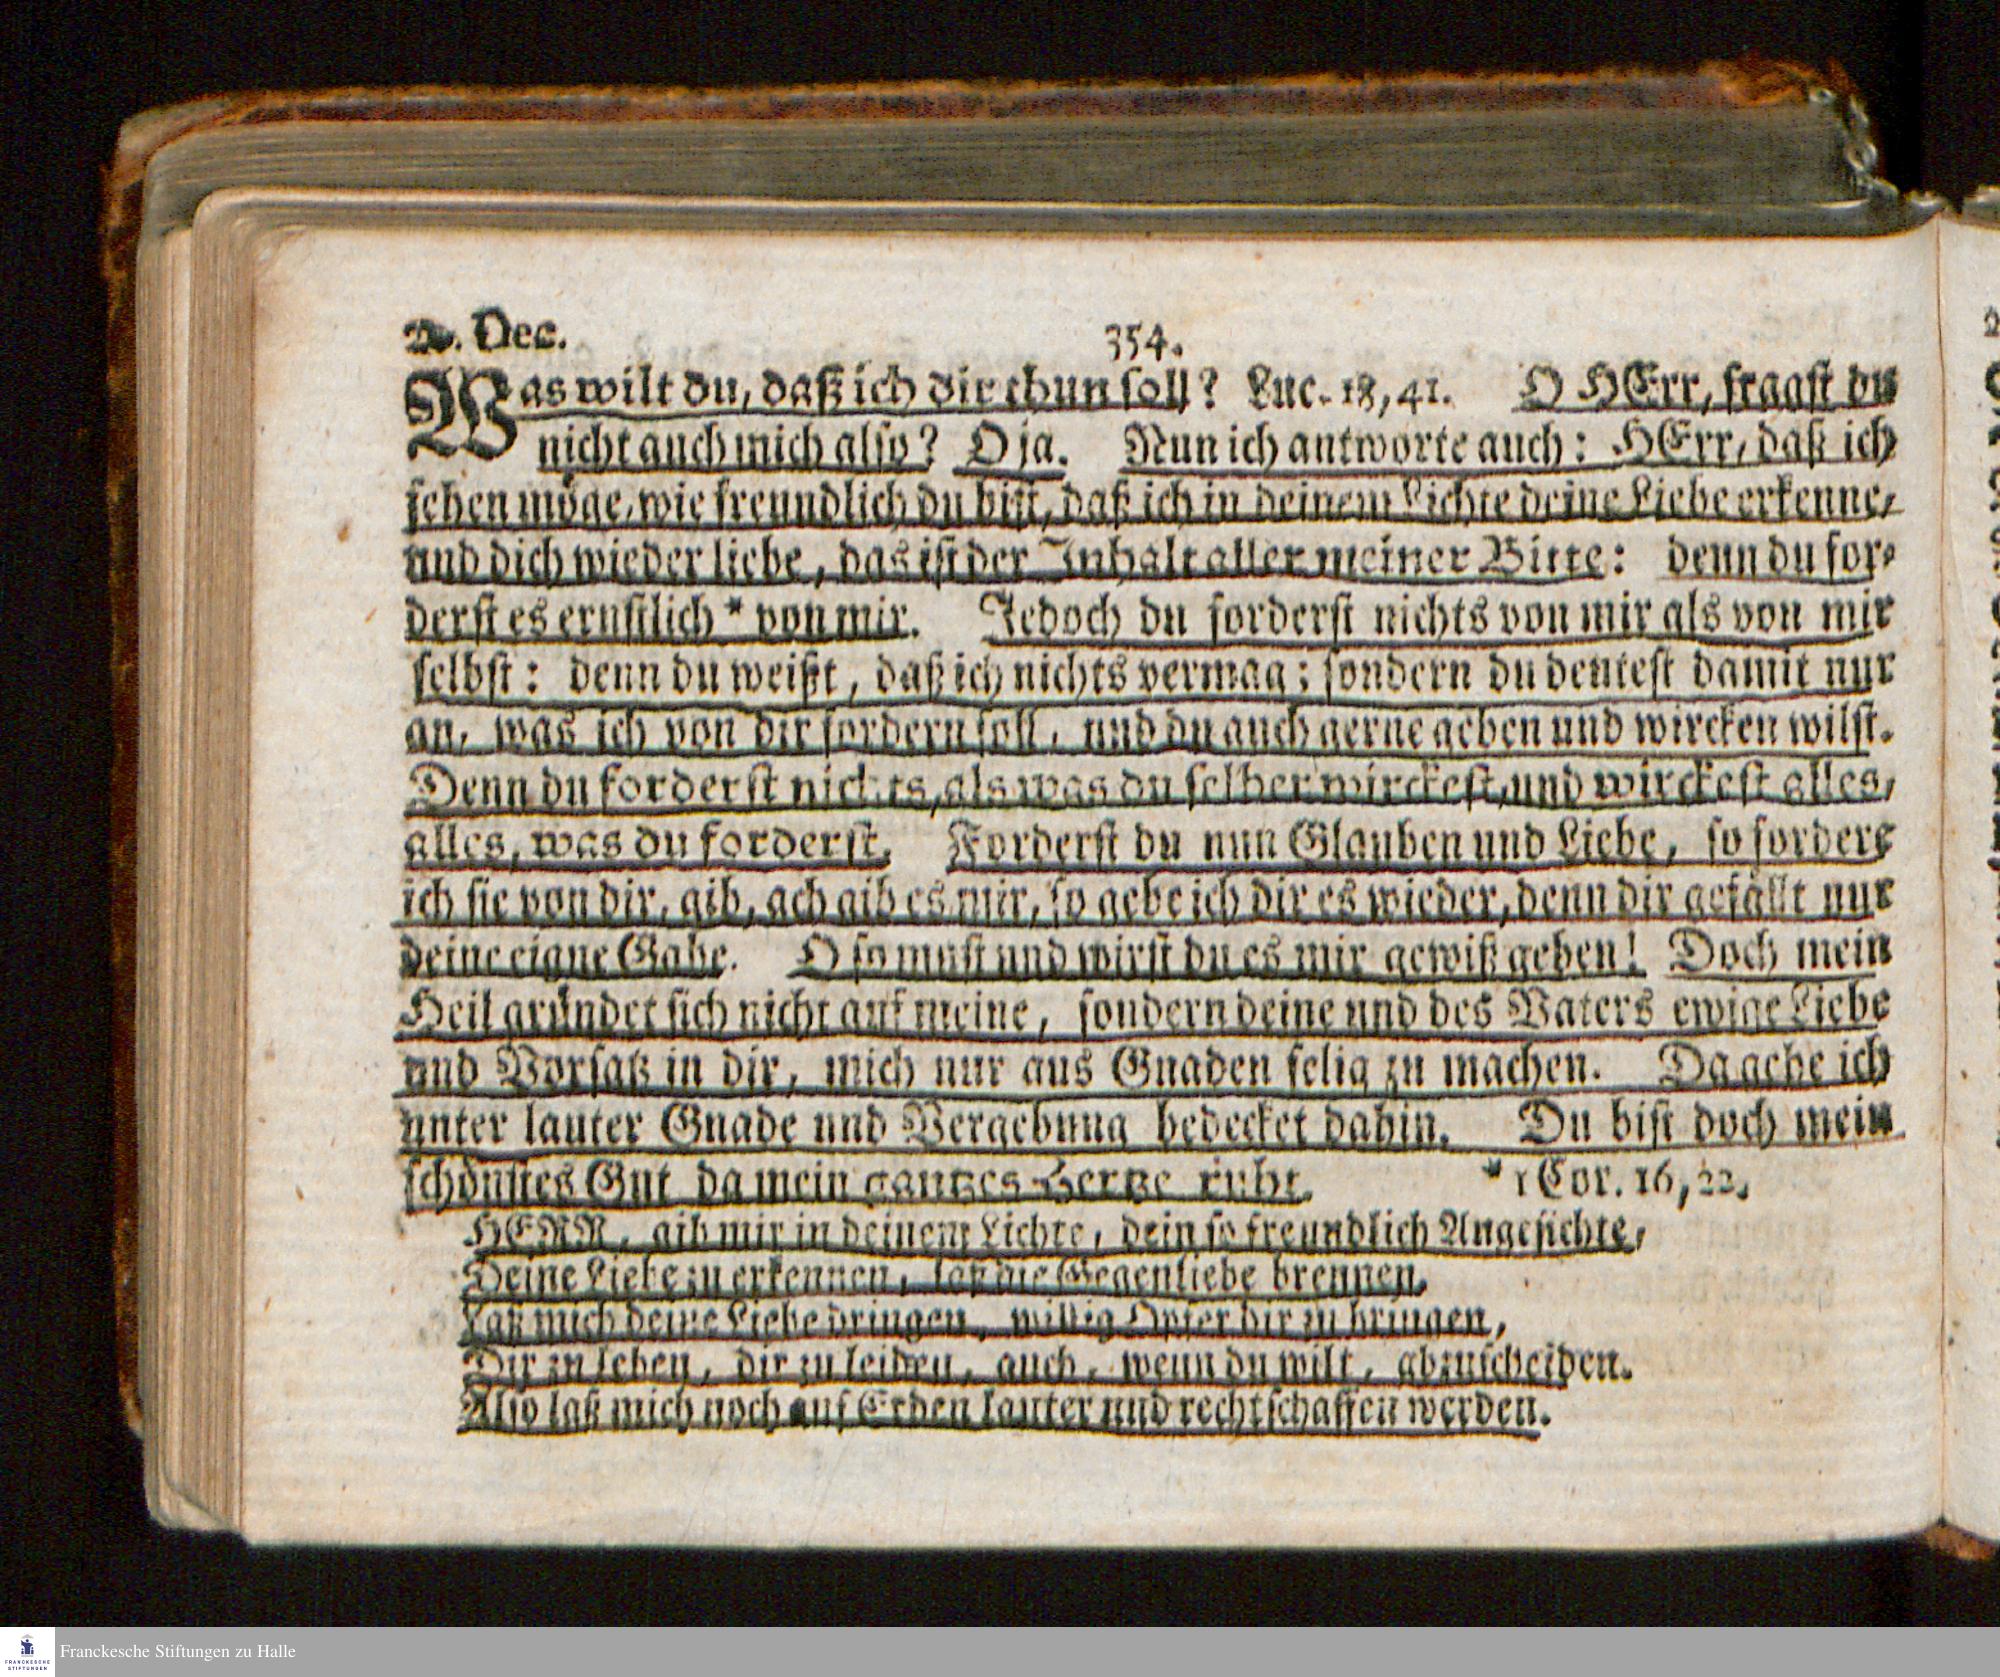 20. Dec. 354.
Was wilt du, daß ich dir thun soll? Luc. 18, 41. O HErr, fragst du
nicht auch mich also? O ja. Nun ich antworte auch: HErr, daß ich
sehen möge, wie freundlich du bist, daß ich in deinem Lichte deine Liebe erkenne,
und dich wieder liebe, das ist der Inhalt aller meiner Bitte: denn du for-
derst es ernstlich * von mir. Jedoch du forderst nichts von mir als von mir
selbst: denn du weißt, daß ich nichts vermag; sondern du deutest damit nur
an, was ich von dir fordern soll, und du auch gerne geben und wircken wilst.
Denn du forderst nichts, als was du selber wirckest, und wirckest alles,
alles, was du forderst. Forderst du nun Glauben und Liebe, so fordere
ich sie von dir, gib, ach gib es mir, so gebe ich dir es wieder, denn dir gefällt nur
deine eigne Gabe. O so must und wirst du es mir gewiß geben! Doch mein
Heil gründet sich nicht auf meine, sondern deine und des Vaters ewige Liebe
und Vorsatz in dir, mich nur aus Gnaden selig zu machen. Da gehe ich
unter lauter Gnade und Vergebung bedecket dahin. Du bist doch mein
schönstes Gut da mein gantzes Hertze ruht. * 1 Cor. 16, 22.
HERR, gib mir in deinem Lichte, dein so freundlich Angesichte,
Deine Liebe zu erkennen, laß die Gegenliebe brennen.
Laß mich deine Liebe dringen, willig Opfer dir zu bringen,
Dir zu leben, dir zu leiden, auch, wenn du wilt, abzuscheiden.
Also laß mich noch auf Erden lauter und rechtschaffen werden.
Franckesche Stiftungen zu Halle
FRANCKESCHE
STIFTUNGEN